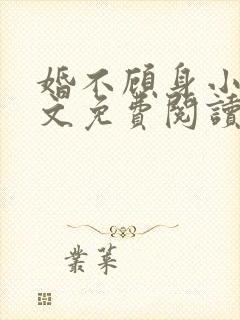 婚不顾身小
文免費閱讀
叢菜